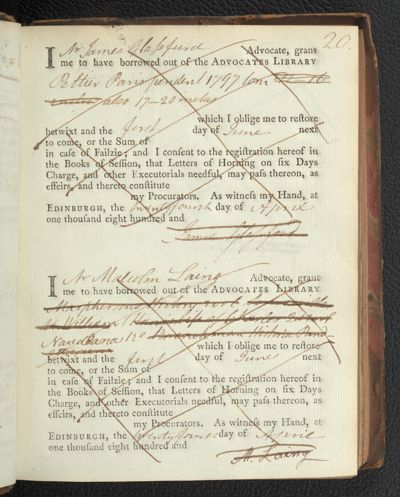 20.
I Mr James Clapfurd Advocate, grant
me to have borrowed out of the ADVOCATES LIBRARY
1797
also 17-20
which I oblige me to restore
betwixt and the first day of June next
to come, or the Sum of
in case of Failzie; and I consent to the registration hereof in
the Books of Session, that Letters of Horning on six Days
Charge, and other Executorials needful, may pass thereon, as
effeirs, and thereto constitute
my Procurators. As witness my Hand, at
EDINBURGH, the day of April
one thousand eight hundred and
James
I Mr Malcolm Laing Advocate, grant
me to have borrowed out of the ADVOCATES LIBRARY
Macphersons History
which I oblige me to restore
betwixt and the first day of June next
to come, or the Sum of
in case of Failzie; and I consent to the registration hereof in
the Books of Session, that Letters of Horning on six Days
Charge, and other Executorials needful, may pass thereon, as
effeirs, and thereto constitute
my Procurators. As witness my Hand, at
EDINBURGH, the day of April
one thousand eight hundred and
M. Laing